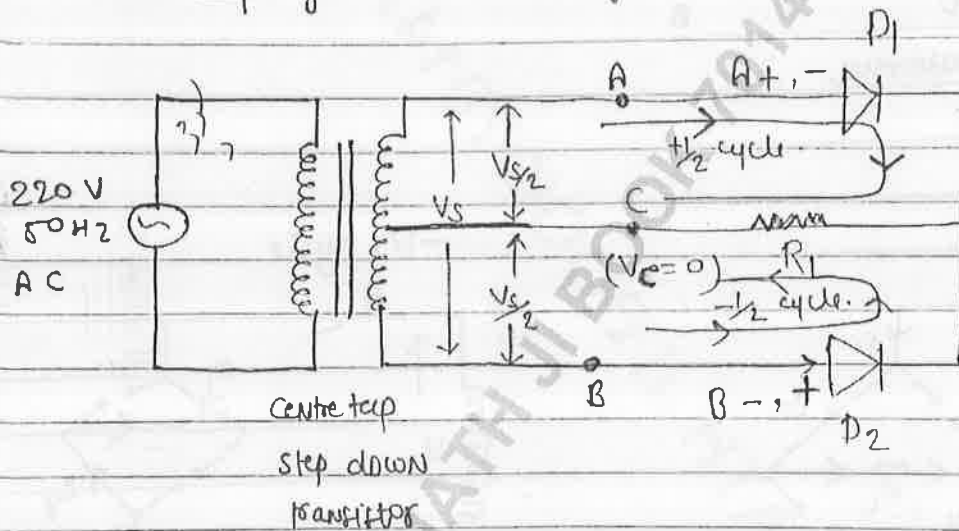 D1
A A+, -
+1/2 cycle.
220 V
50 Hz
A C
Vs
Vs/2
C
(Vc=0)
R1
-1/2 cycle.
Vs/2
B B-, +
D2
centre tap
step down
transistor
ATH JI BOOK 7014